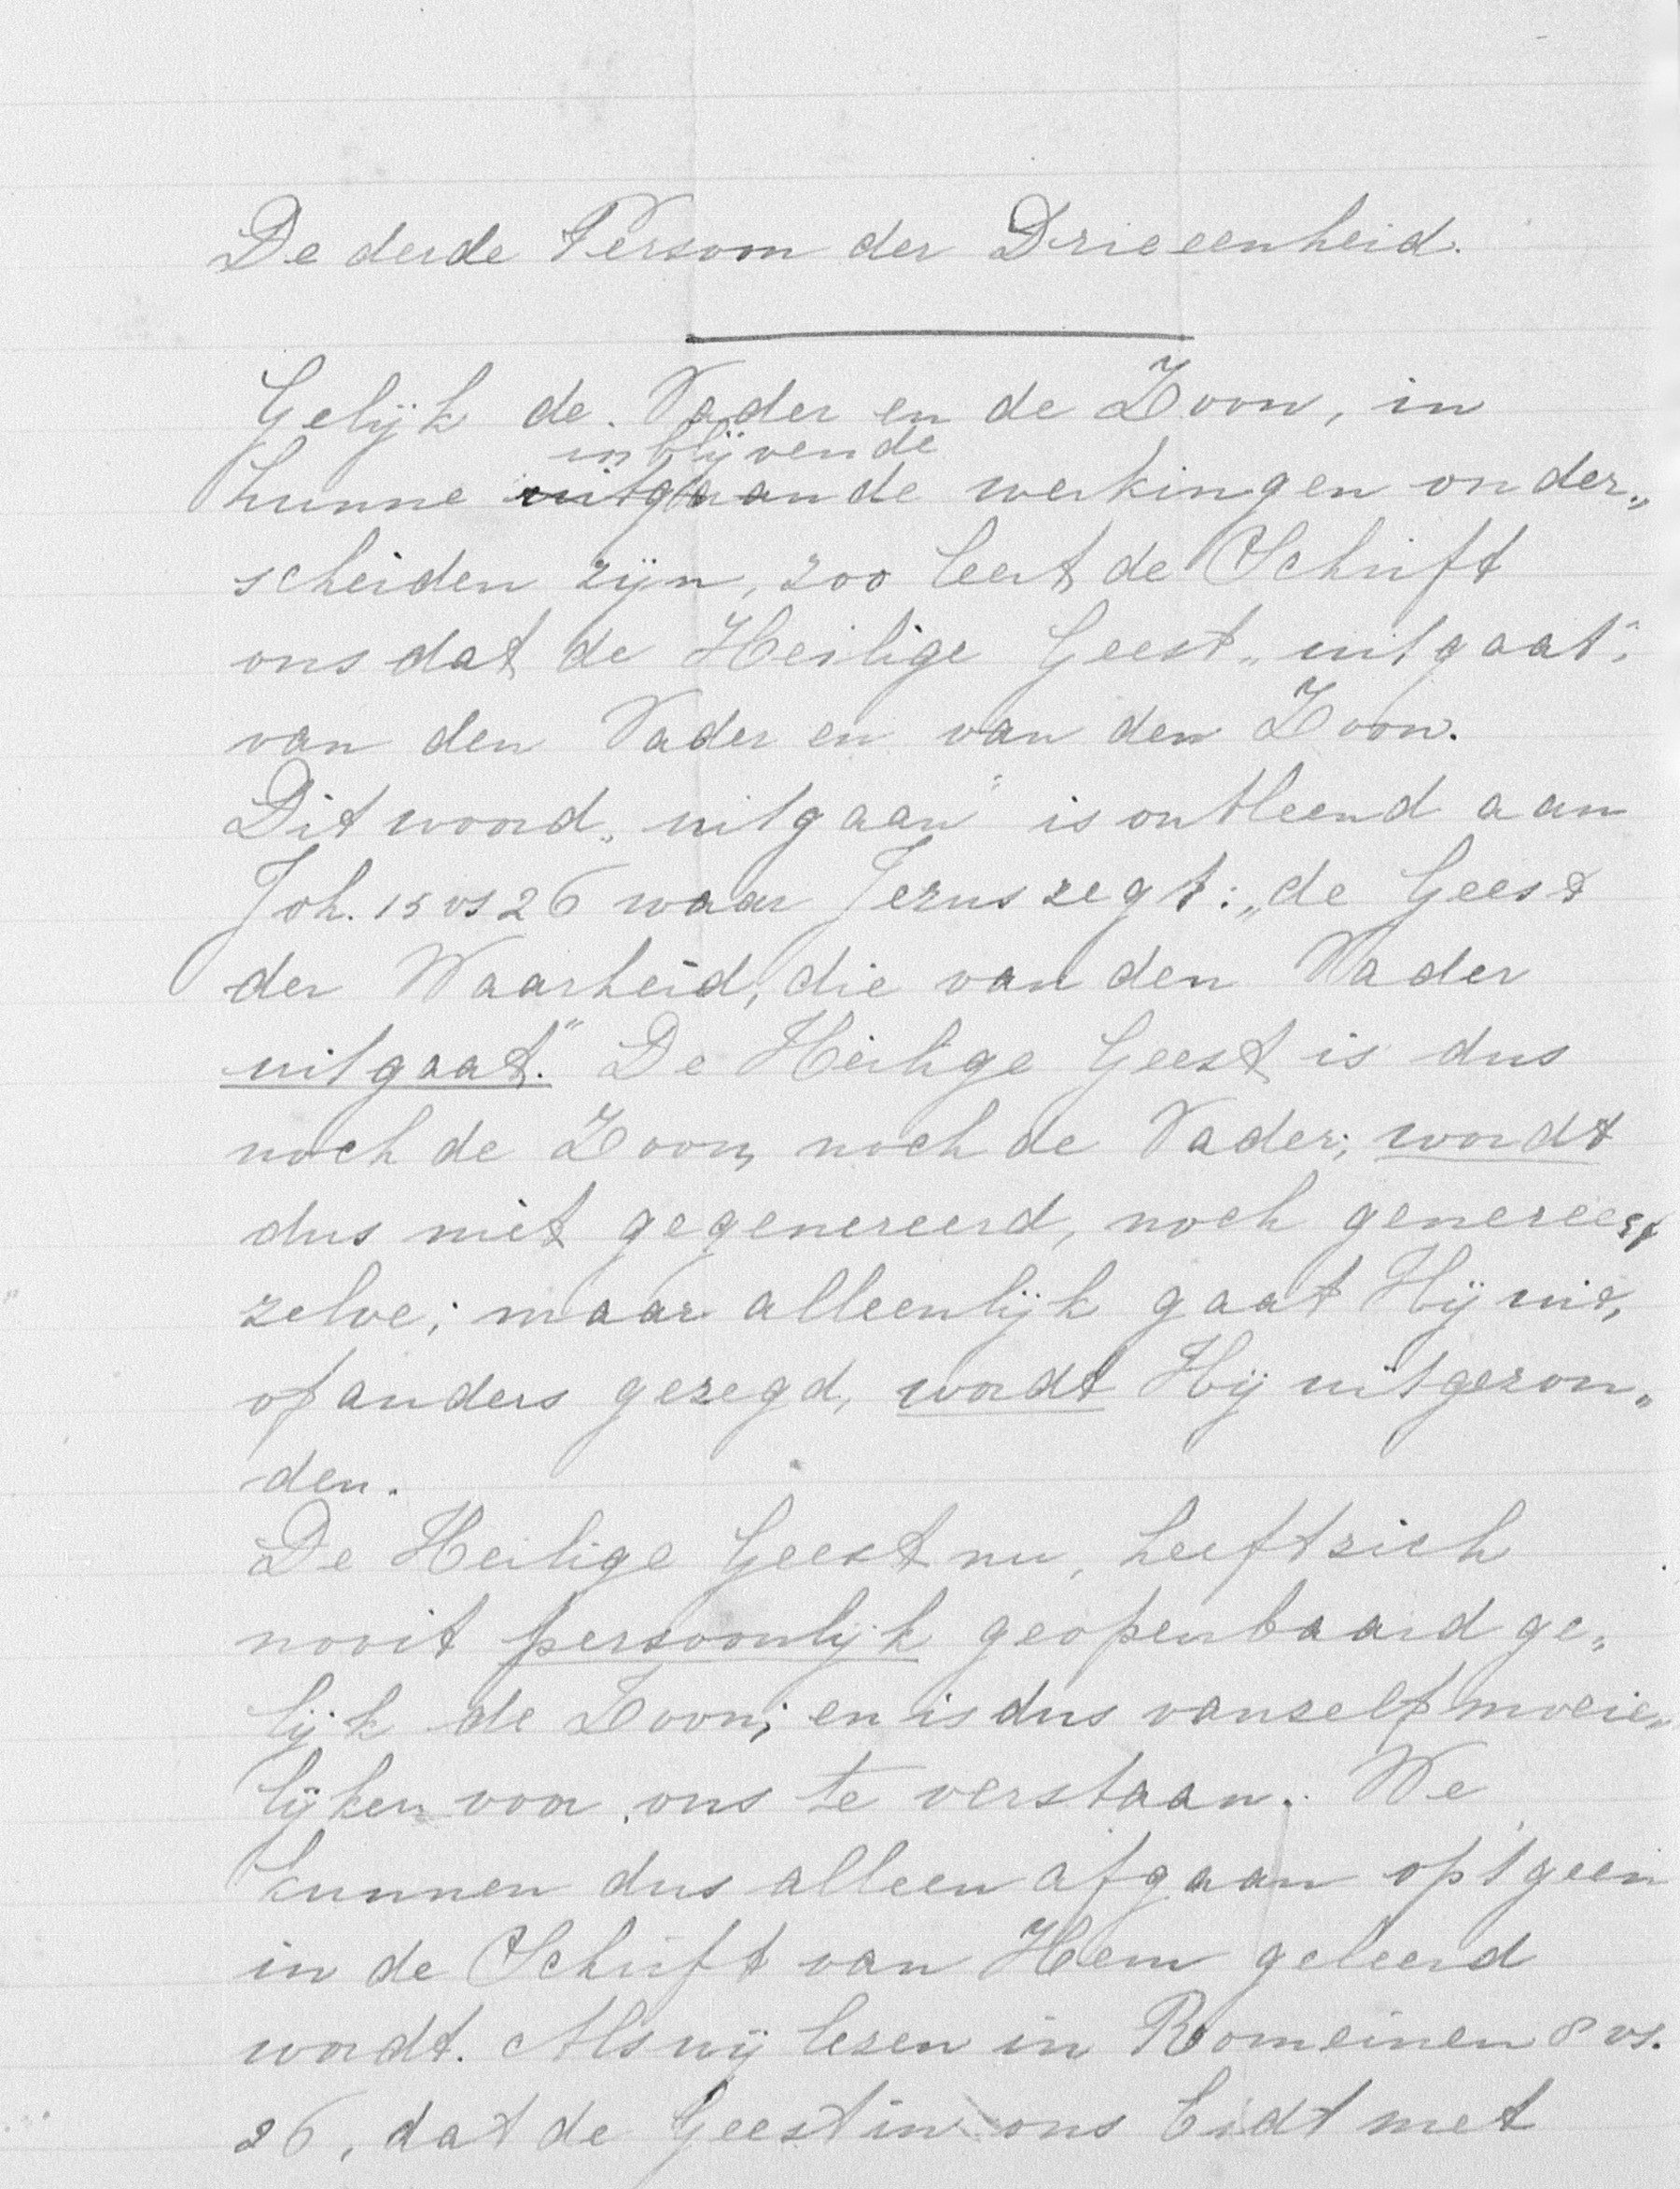 De derde Persoon der Drieeenheid.
Gelijk de Vader en de Zoon, in
inblijvende
hunne uitgaande werkingen onder„
scheiden zijn, zoo leert de Schrift
ons dat de Heilige Geest „uitgaat”
van den Vader en van den Zoon.
Dit woord „uitgaan” is ontleend aan
Joh. 15 vs 26 waar Jezus zegt: „de Geest
der Waarheid, die van den Vader
uitgaat.” De Heilige Geest is dus
noch de Zoon, noch de Vader; wordt
dus niet gegenereerd, noch genereert
zelve; maar alleenlijk gaat Hij uit,
of anders gezegd, wordt Hij uitgezon„
den.
De Heilige Geest nu, heeft zich
nooit persoonlijk geopenbaard ge„
lijk de Zoon; en is dus vanzelf moeie„
lijker voor ons te verstaan. We
kunnen dus alleen afgaan op 't geen
in de Schrift van Hem geleerd
wordt. Als wij lezen in Romeinen 8 vs.
26, dat de Geest in ons bidt met